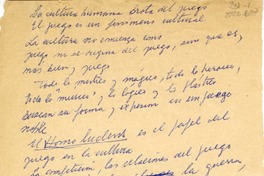 La cultura humana brota del juego
El juego es un fenómeno cultural
La cultura no comienza como
juego ni se origina del juego, sino que es,
más bien, juego
Todo lo místico y mágico, todo lo heroico
todo lo "músico", lo lógico y lo plástico
buscan su forma y expresión en un juego
noble
El Homo ludens es el papel del
juego en la cultura
La competición, las relaciones del juego
la guerra,